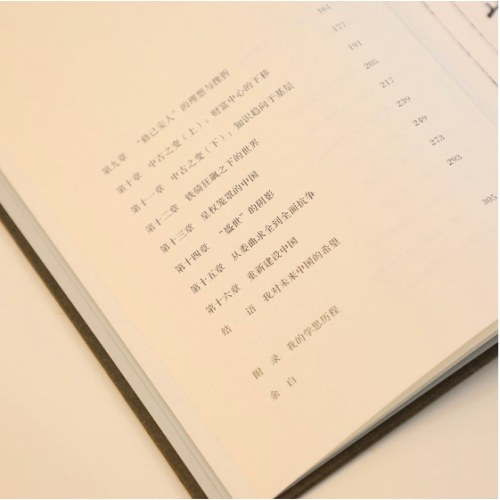 第九章 “修己安人”的理想与挫折 161
第十章 中古之变（上）：财富中心的下移 177
第十一章 中古之变（下）：知识趋向于基层 191
第十二章 铁骑狂飙之下的世界 205
第十三章 皇权笼罩的中国 217
第十四章 “盛世”的阴影 239
第十五章 从委曲求全到全面抗争 249
第十六章 重新建设中国 273
结 语 我对未来中国的希望 293
附 录 我的学思历程 305
余 白